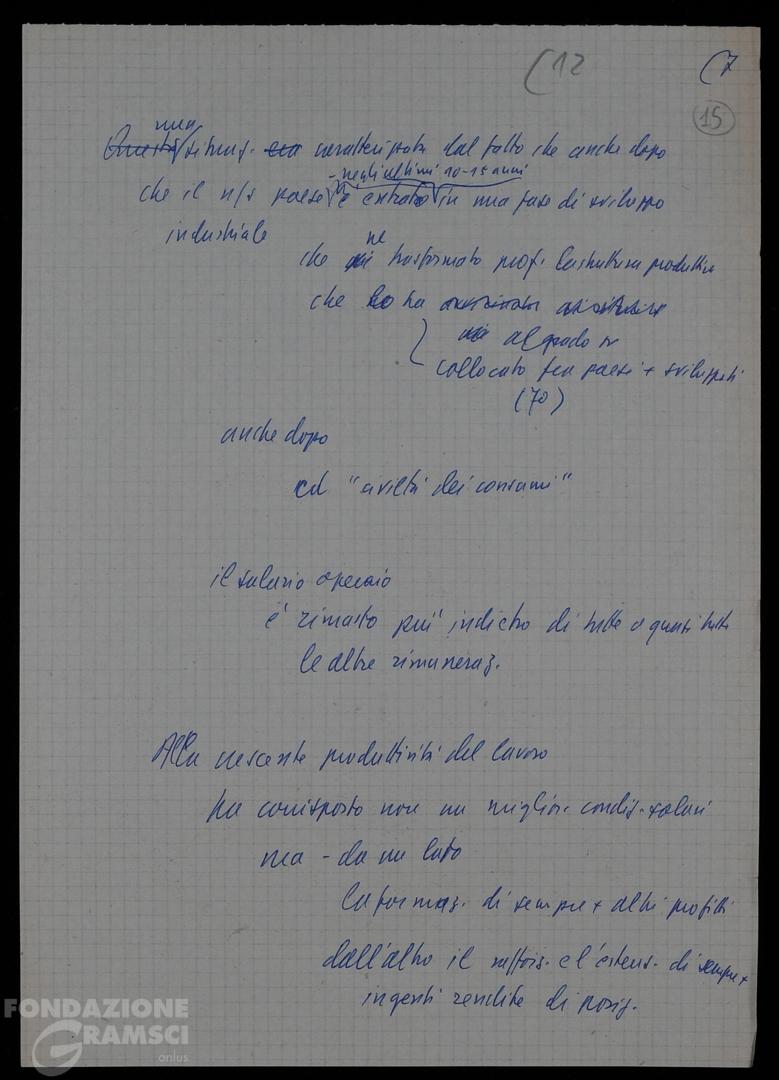 (12
(7
15
una
Questa situaz. era caratterizzata dal fatto che anche dopo
- negli ultimi 10-15 anni
che il n/s paese è entrato in una fase di sviluppo
industriale
ne
che ha trasformato prof. la struttura produttiva
che lo ha
al grado
collocato fra paesi + sviluppati
(70)
anche dopo
cd "civiltà dei consumi"
il salario operaio
è rimasto più indietro di tutte o quasi tutte
le altre rimuneraz.
Alla crescente produttività del lavoro
ha corrisposto non un miglior. condiz. salari
ma - da un lato
la formaz. di sempre + alti profitti
dall'altro il rafforz. e l'estens. di sempre +
ingenti rendite di posiz.
FONDAZIONE
GRAMSCI
onlus